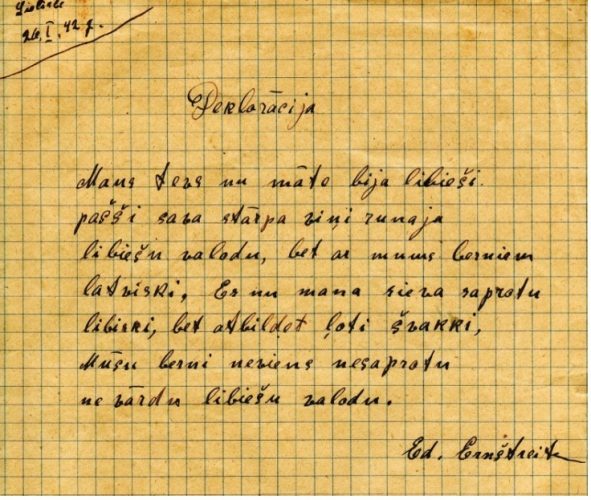 26. I. 42 g.
Deklorācija
Mans tevs nu māte bija libieši.
pašši sava stārpa viņi runaja
libiešu valodu, bet ar mums berniem
latviski, Es nu mana sieva sapratu
libiski, bet atbildet ļoti švakki,
Mūsu berni neviens nesaprotu
ne vārdu libiešu valodu.
Ed. Ernštreit